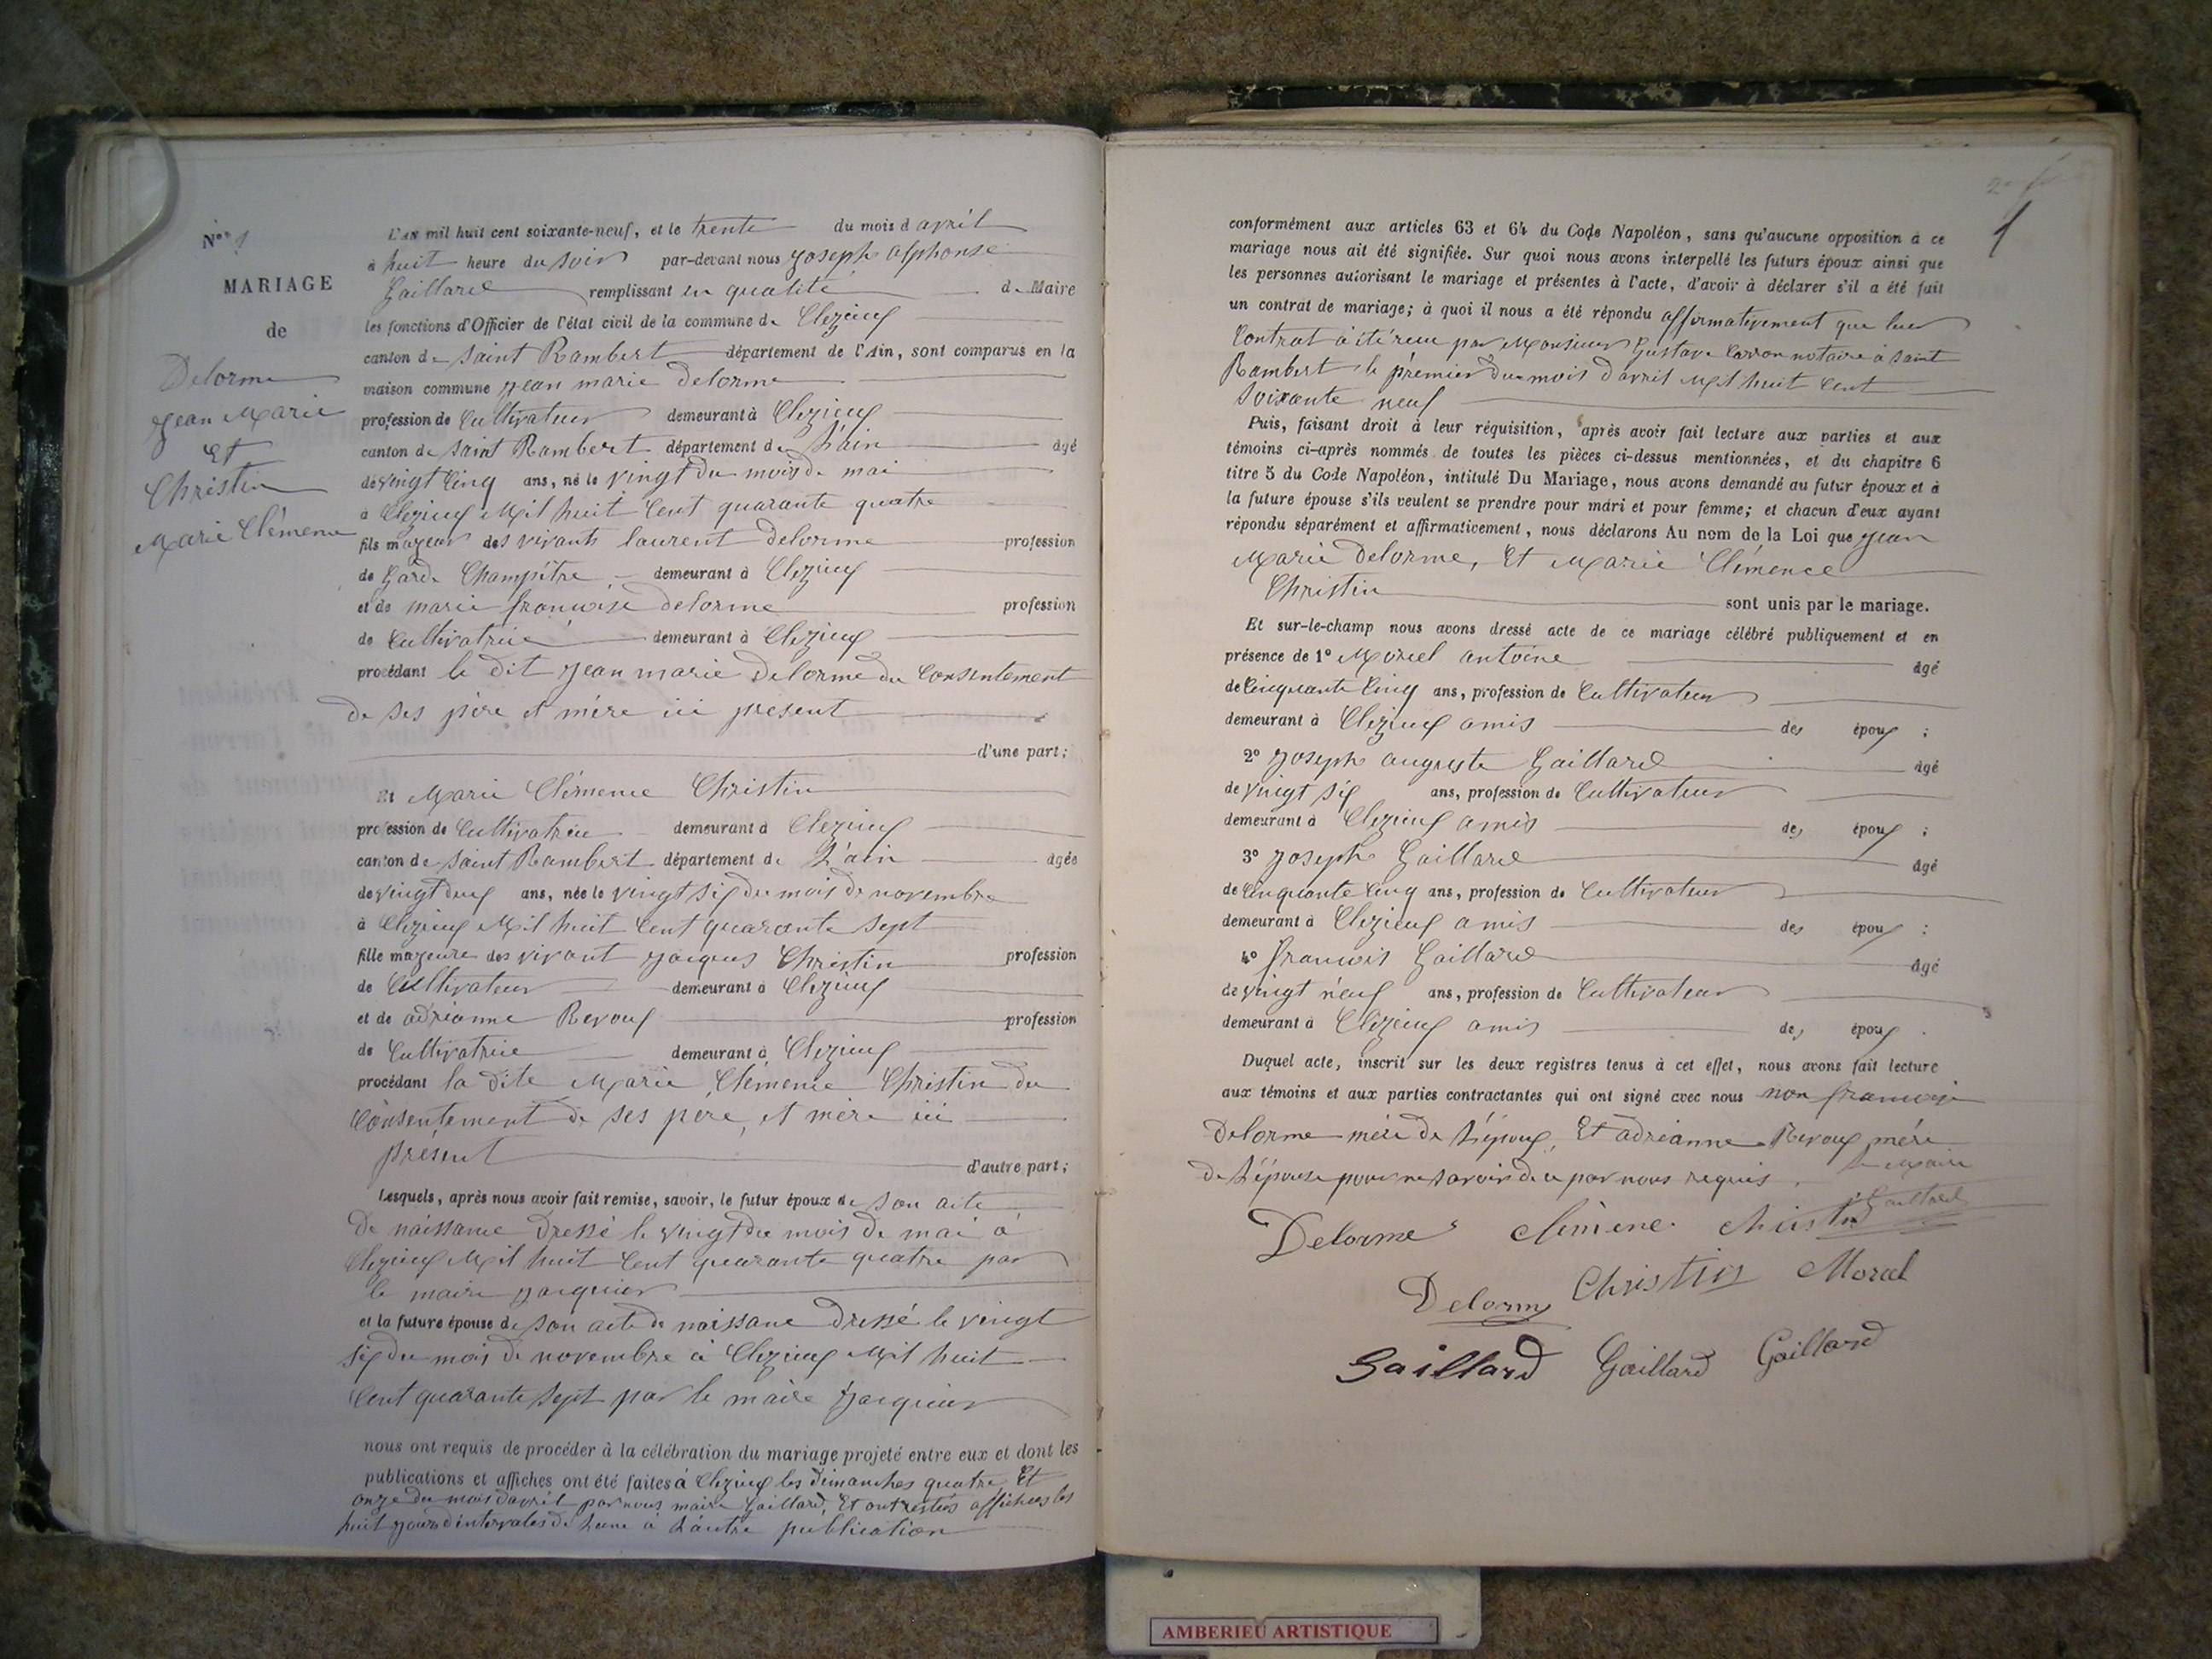 N° 1
MARIAGE
de
Delorme
Jean Marie
Et
Christin
Marie Clémence
L'an mil huit cent soixante-neuf, et le trente du mois d avril
à huit heure du soir par-devant nous Joseph alphonse
Gaillard remplissant en qualité de Maire
les fonctions d'Officier de l'état civil de la commune de Clezieux
canton de Saint Rambert département de l'Ain, sont comparus en la
maison commune jean marie delorme
profession de Cultivateur demeurant à Clezieux
canton de saint Rambert département de L'ain âgé
de vingt Cinq ans, né le vingt du mois de mai
à Clezieux Mil huit Cent quarante quatre
fils majeur des vivants laurent delorme profession
de Garde Champêtre demeurant à Clezieux
et de marie francoise delorme profession
de Cultivatrice demeurant à Clezieux
procédant le dit jean marie Delorme du Consentement
de ses père et mère ici présent
d'une part;
Et Marie Clémence Christin
profession de Cultivatrice demeurant à Clezieux
canton de Saint Rambert département de L'ain âgée
de vingt deux ans, née le vingt six du mois de novembre
à Clezieux Mil huit Cent quarante sept
fille majeure des vivant jacques Christin profession
de Cultivateur demeurant à Clezieux
et de adrianne Revoux profession
de Cultivatrice demeurant à Clezieux
procédant la dite Marie Clémence Christin du
Consentement de ses père et mère ici
présent
d'autre part;
Lesquels, après nous avoir fait remise, savoir, le futur époux de son acte
de naissance dressé le vingt du mois de mai à
Clezieux Mil huit Cent quarante quatre par
le maire jacquier
et la future épouse de son acte de naissance dressé le vingt
six du mois de novembre à Clezieux Mil huit
Cent quarante sept par le maire jacquier
nous ont requis de procéder à la célébration du mariage projeté entre eux et dont les
publications et affiches ont été faites à Clezieux les dimanches quatre, Et
onze du mois d'avril par nous maire Gaillard, Et ont restés affichees les
huit jours d'intervales de L'une à L'autre publication
1
conformément aux articles 63 et 64 du Code Napoléon, sans qu'aucune opposition à ce
mariage nous ait été signifiée. Sur quoi nous avons interpellé les futurs époux ainsi que
les personnes autorisant le mariage et présentes à l'acte, d'avoir à déclarer s'il a été fait
un contrat de mariage; à quoi il nous a été répondu affirmativement que leur
Contrat à été reçu par Monsieur Gustave Carron notaire à saint
Rambert le prémier du mois d'avril Mil huit Cent
Soixante neuf
Puis, faisant droit à leur réquisition, après avoir fait lecture aux parties et aux
témoins ci-après nommés de toutes les pièces ci-dessus mentionnées, et du chapitre 6
titre 5 du Code Napoléon, intitulé Du Mariage, nous avons demandé au futur époux et à
la future épouse s'ils veulent se prendre pour mari et pour femme; et chacun d'eux ayant
répondu séparément et affirmativement, nous déclarons Au nom de la Loi que jean
Marie Delorme, Et Marie Clémence
Christin sont unis par le mariage.
Et sur-le-champ nous avons dressé acte de ce mariage célébré publiquement et en
présence de 1° Morel antoine âgé
de Cinquante Cinq ans, profession de Cultivateur
demeurant à Clezieux amis des époux ;
2° Joseph auguste Gaillard âgé
de vingt six ans, profession de Cultivateur
demeurant à Clezieux amis des époux ;
3° Joseph Gaillard âgé
de Cinquante Cinq ans, profession de Cultivateur
demeurant à Clezieux amis des époux :
4° francois Gaillard âgé
de vingt neuf ans, profession de Cultivateur
demeurant à Clezieux amis des époux .
Duquel acte, inscrit sur les deux registres tenus à cet effet, nous avons fait lecture
aux témoins et aux parties contractantes qui ont signé avec nous non francoise
Delorme mère de L'époux, Et adrianne Revoux mére
de L'épouse pour ne savoir de ce par nous requis .
Le Maire
Gaillard
Delorme Clémence Christin
Delorme Christin Morel
Gaillard Gaillard Gaillard
AMBERIEU ARTISTIQUE